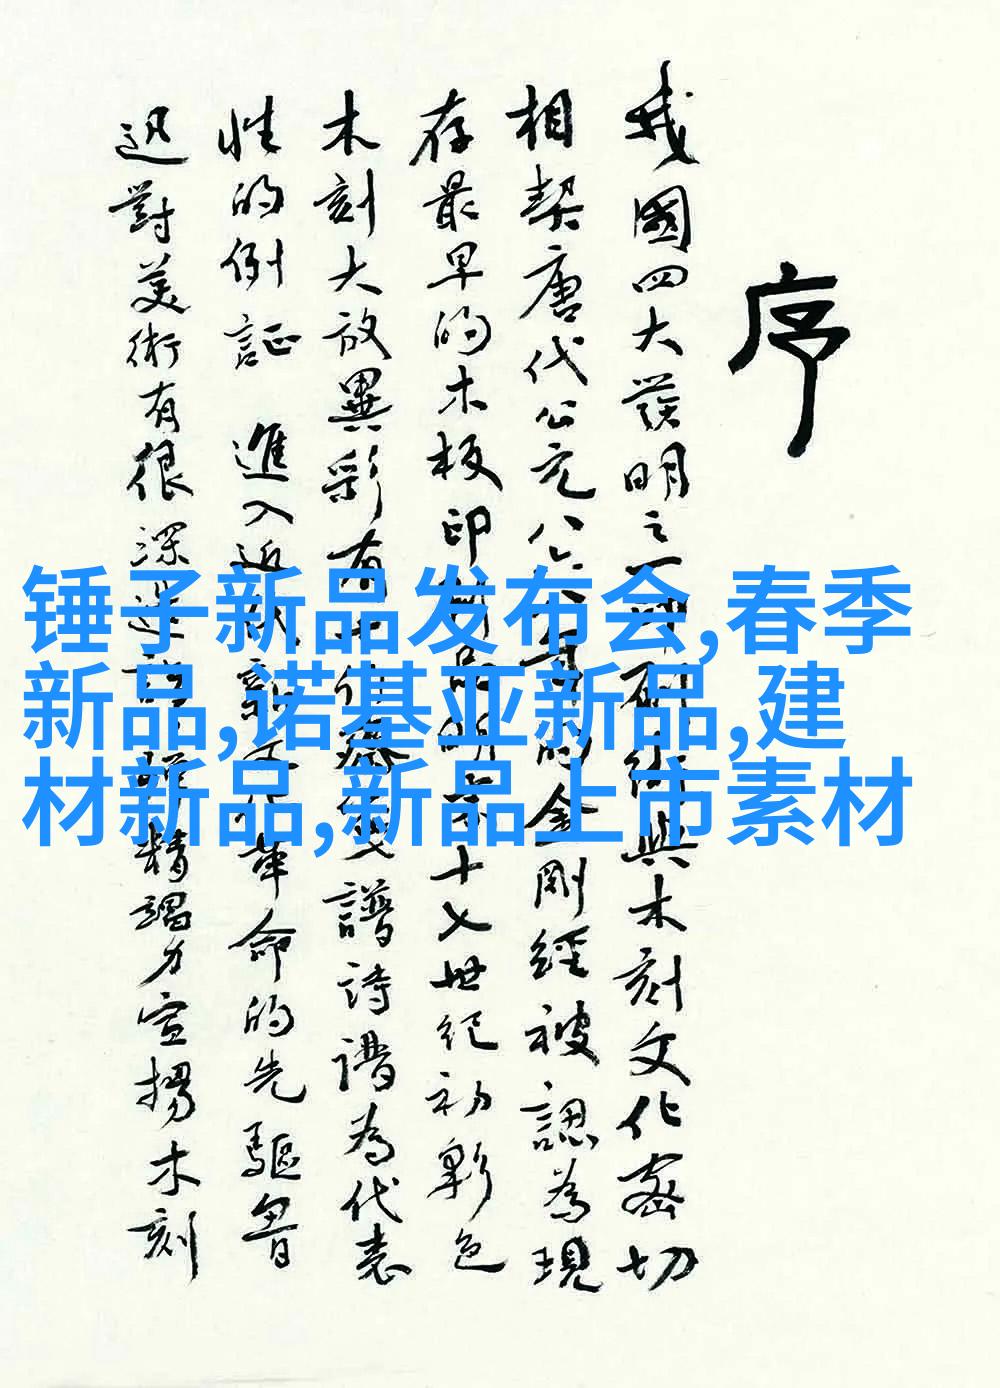 序
我國四大發明之一印刷術與木刻文化密切
相契唐代公元八六八年的金剛經被認為現
存最早的木板印刷品明末十七世紀初彩色
木刻大放異彩有十竹齋畫譜詩譜為代表
性的例証 進入近代新文化革命的先驅魯
迅對美術有很深造詣 精竭力宣揚木刻
锤子新品发布会,春季
新品,诺基亚新品,建
材新品,新品上市素材